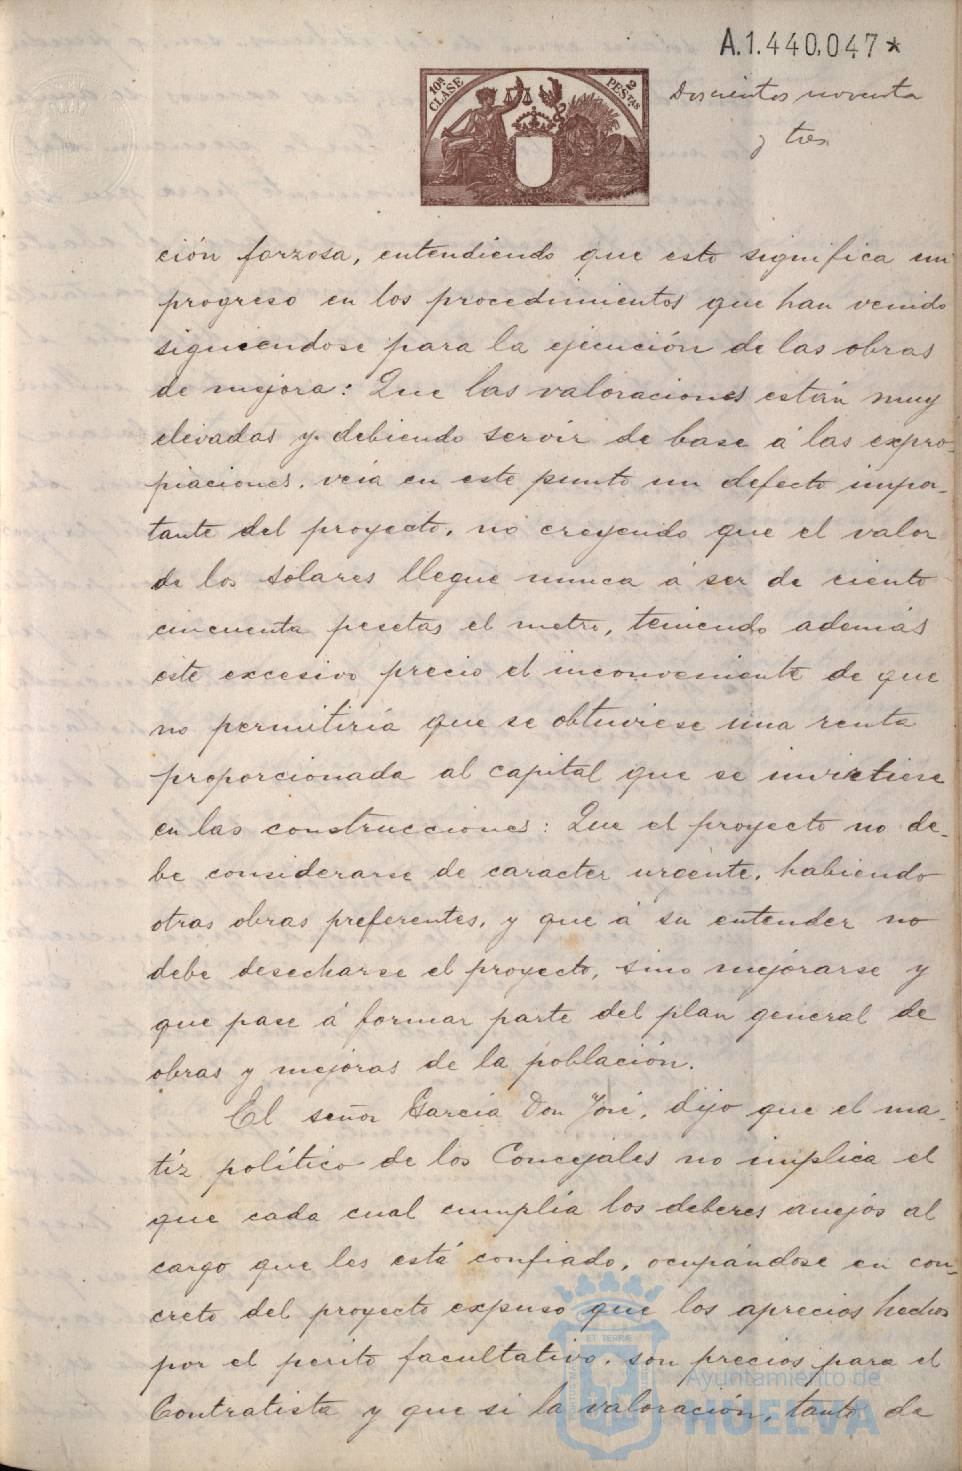 A.1.440.047*
10ª CLASE
2 PESTAS
Doscientos noventa
y tres
ción forzosa, entendiendo que esto significa un
progreso en los procedimientos que han venido
siguiendose para la ejecución de las obras
de mejora: Que las valoraciones están muy
elevadas y debiendo servir de base á las expro-
piaciones, veía en este punto un defecto impor-
tante del proyecto, no creyendo que el valor
de los solares llegue nunca á ser de ciento
cincuenta pesetas el metro, teniendo además
este excesivo precio el inconveniente de que
no permitiría que se obtuviese una renta
proporcionada al capital que se invirtiese
en las construcciones: Que el proyecto no de-
be considerarse de caracter urgente, habiendo
otras obras preferentes, y que á su entender no
debe desecharse el proyecto, sino mejorarse y
que pase á formar parte del plan general de
obras y mejoras de la población.
El señor García Don José, dijo que el ma-
tíz político de los Concejales no implica el
que cada cual cumplía los deberes anejos al
cargo que les está confiado, ocupándose en con-
creto del proyecto expuso que los aprecios hechos
por el perito facultativo, son precios para el
Contratista y que si la valoración, tanto de
ET TERRAE
Ayuntamiento de
HUELVA